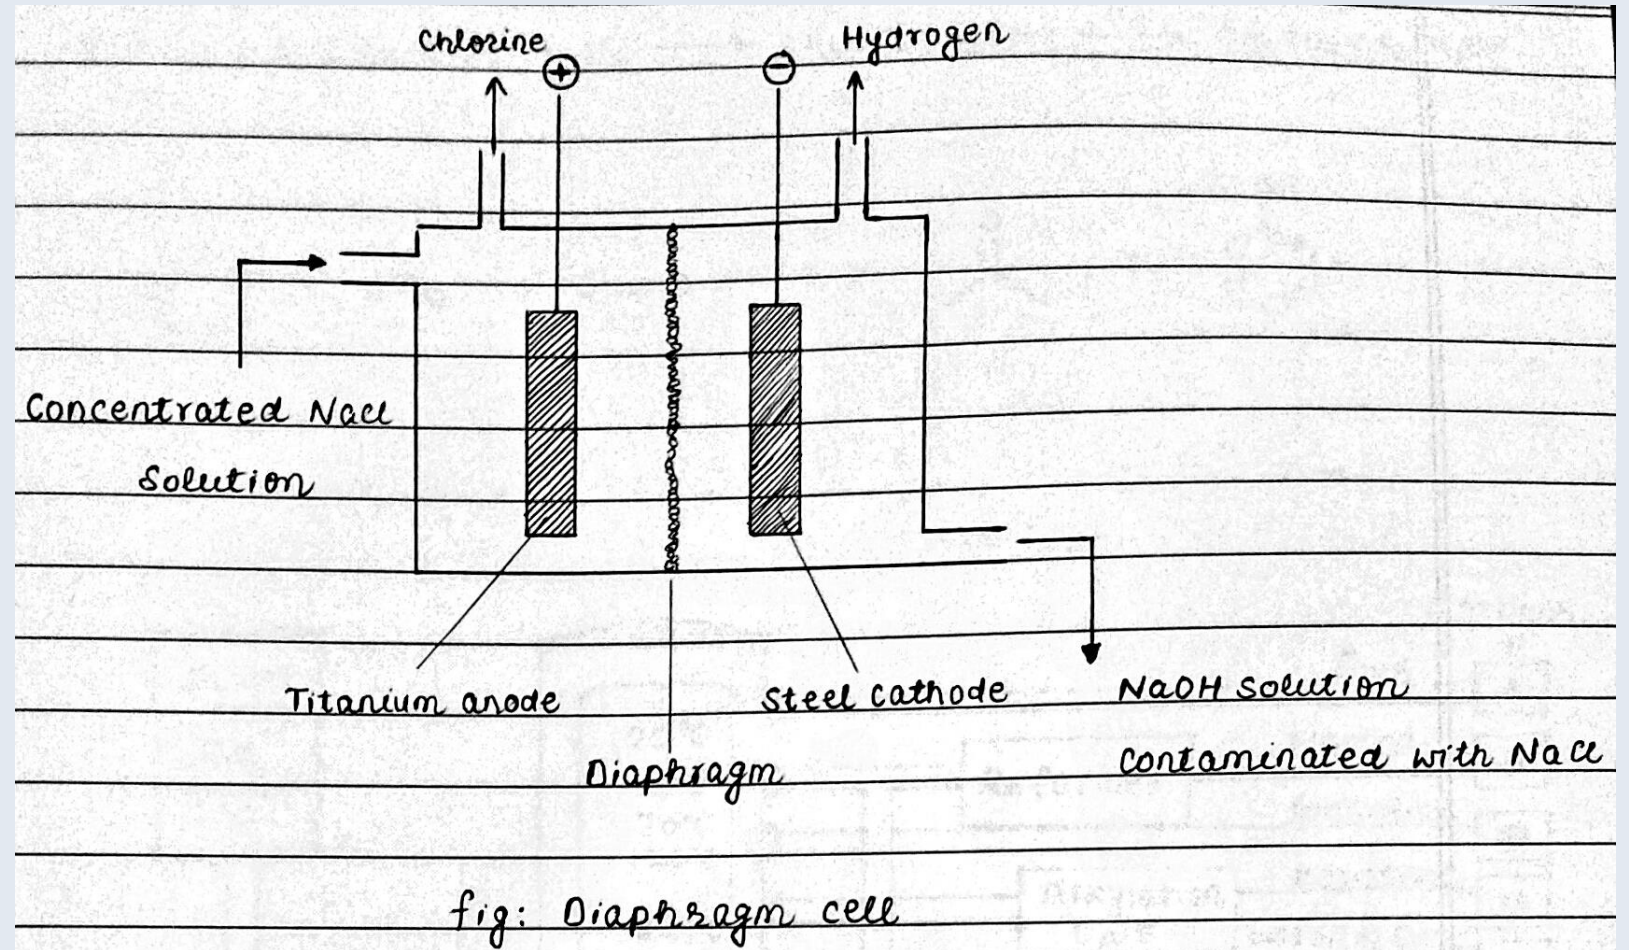 Chlorine
+
−
Hydrogen
Concentrated NaCl
Solution
Titanium anode
Steel cathode
NaOH solution
Diaphragm
contaminated with NaCl
fig: Diaphragm cell